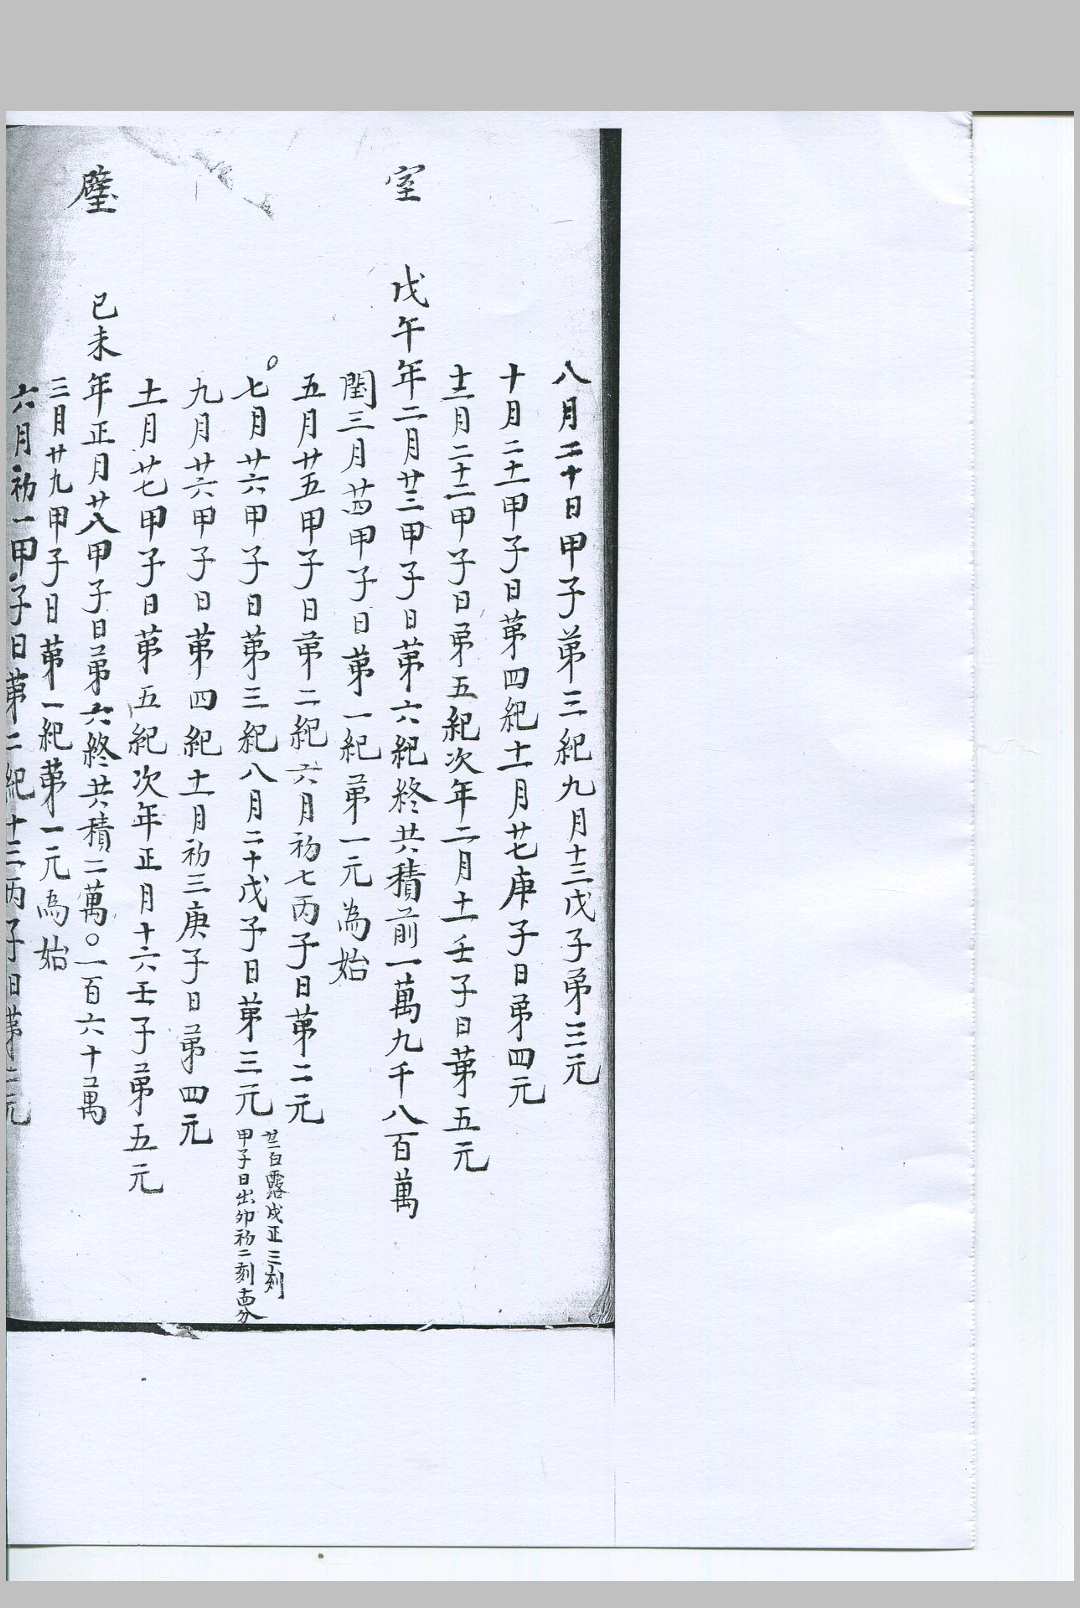 八月二十日甲子第三紀九月十三戊子第三元
十月二十一甲子日第四紀十一月廿七庚子日第四元
十二月二十二甲子日第五紀次年二月十一壬子日第五元
室 戊午年二月廿三甲子日第六紀終共積前一萬九千八百萬
閏三月廿四甲子日第一紀第一元為始
五月廿五甲子日第二紀六月初七丙子日第二元
七月廿六甲子日第三紀八月二十戊子日第三元
廿二白露戌正三刻
甲子日出卯初二刻
九月廿六甲子日第四紀十一月初三庚子日第四元
十一月廿七甲子日第五紀次年正月十六壬子第五元
壁 己未年正月廿八甲子日第六終共積二萬〇一百六十萬
三月廿九甲子日第一紀第一元為始
六月初一甲子日第二紀十三丙子日第二元